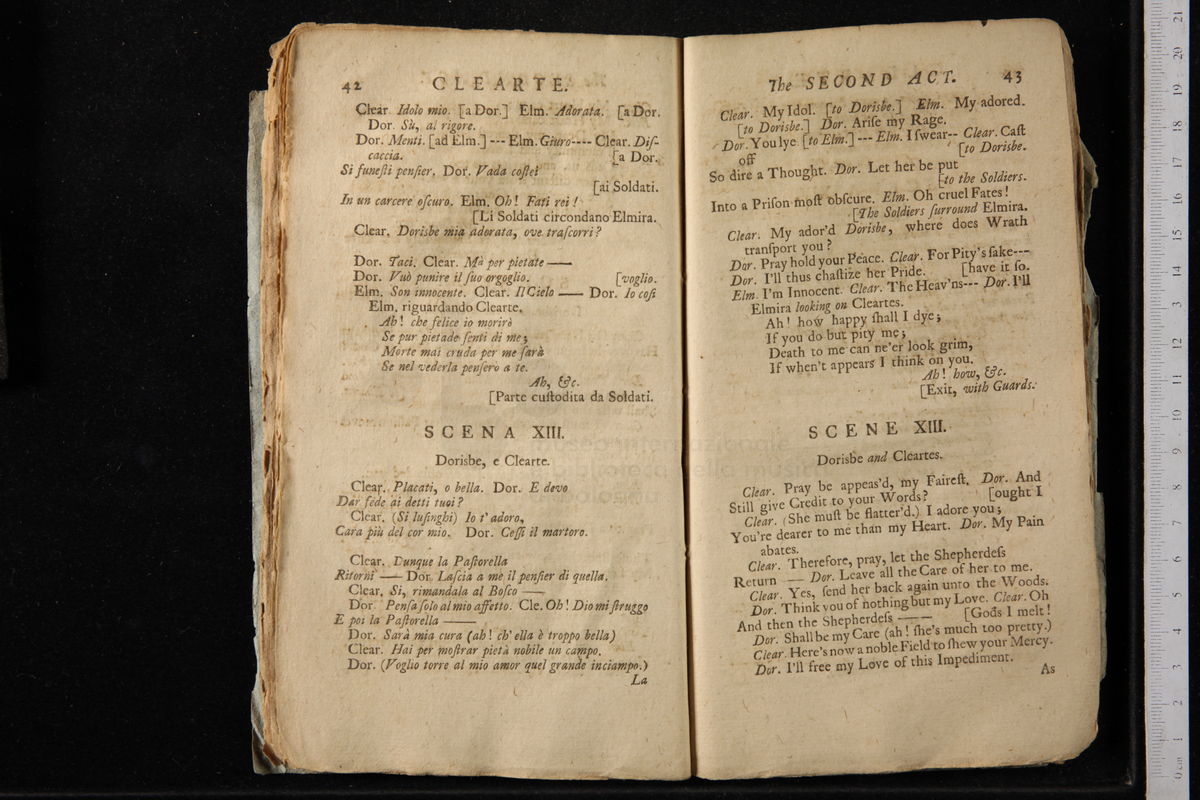 42 CLEARTE.
Clear. Idolo mio. [a Dor.] Elm. Adorata. [a Dor.
Dor. Sù, al rigore.
Dor. Menti. [ad Elm.] --- Elm. Giuro---- Clear. Diſ-
caccia. [a Dor.
Si funeſti penſier. Dor. Vada coſtei
[ai Soldati.
In un carcere oſcuro. Elm. Oh! Fati rei!
[Li Soldati circondano Elmira.
Clear. Dorisbe mia adorata, ove traſcorri?
Dor. Taci. Clear. Mà per pietate ——
Dor. Vuò punire il ſuo orgoglio. [voglio.
Elm. Son innocente. Clear. Il Cielo —— Dor. Io coſi
Elm. riguardando Clearte.
Ah! che felice io morirò
Se pur pietade ſenti di me;
Morte mai cruda per me ſarà
Se nel vederla penſero a te.
Ah, &c.
[Parte cuſtodita da Soldati.
SCENA XIII.
Dorisbe, e Clearte.
Clear. Placati, o bella. Dor. E devo
Dar fede ai detti tuoi?
Clear. (Si luſinghi) Io t' adoro,
Cara più del cor mio. Dor. Ceſſi il martoro.
Clear. Dunque la Paſtorella
Ritorni —— Dor. Laſcia a me il penſier di quella.
Clear. Si, rimandala al Boſco ——
Dor. Penſa ſolo al mio affetto. Cle. Oh! Dio mi ſtruggo
E poi la Paſtorella ——
Dor. Sarà mia cura (ah! ch' ella è troppo bella)
Clear. Hai per moſtrar pietà nobile un campo.
Dor. (Voglio torre al mio amor quel grande inciampo.)
La
The SECOND ACT. 43
Clear. My Idol. [to Dorisbe.] Elm. My adored.
[to Dorisbe.] Dor. Ariſe my Rage.
Dor. You lye [to Elm.] --- Elm. I ſwear-- Clear. Caſt
off [to Dorisbe.
So dire a Thought. Dor. Let her be put
[to the Soldiers.
Into a Priſon moſt obſcure. Elm. Oh cruel Fates!
[The Soldiers ſurround Elmira.
Clear. My ador'd Dorisbe, where does Wrath
tranſport you?
Dor. Pray hold your Peace. Clear. For Pity's ſake---
Dor. I'll thus chaſtize her Pride. [have it ſo.
Elm. I'm Innocent. Clear. The Heav'ns--- Dor. I'll
Elmira looking on Cleartes.
Ah! how happy ſhall I dye;
If you do but pity me;
Death to me can ne'er look grim,
If when't appears I think on you.
Ah! how, &c.
[Exit, with Guards.
SCENE XIII.
Dorisbe and Cleartes.
Clear. Pray be appeas'd, my Faireſt. Dor. And
Still give Credit to your Words? [ought I
Clear. (She muſt be flatter'd.) I adore you;
You're dearer to me than my Heart. Dor. My Pain
abates.
Clear. Therefore, pray, let the Shepherdeſs
Return —— Dor. Leave all the Care of her to me.
Clear. Yes, ſend her back again unto the Woods.
Dor. Think you of nothing but my Love. Clear. Oh
And then the Shepherdeſs —— [Gods I melt!
Dor. Shall be my Care (ah! ſhe's much too pretty.)
Clear. Here's now a noble Field to ſhew your Mercy.
Dor. I'll free my Love of this Impediment.
As
museo internazionale
biblioteca della musica
bologna
0 cm 1 2 3 4 5 6 7 8 9 10 11 12 13 14 15 16 17 18 19 20 21